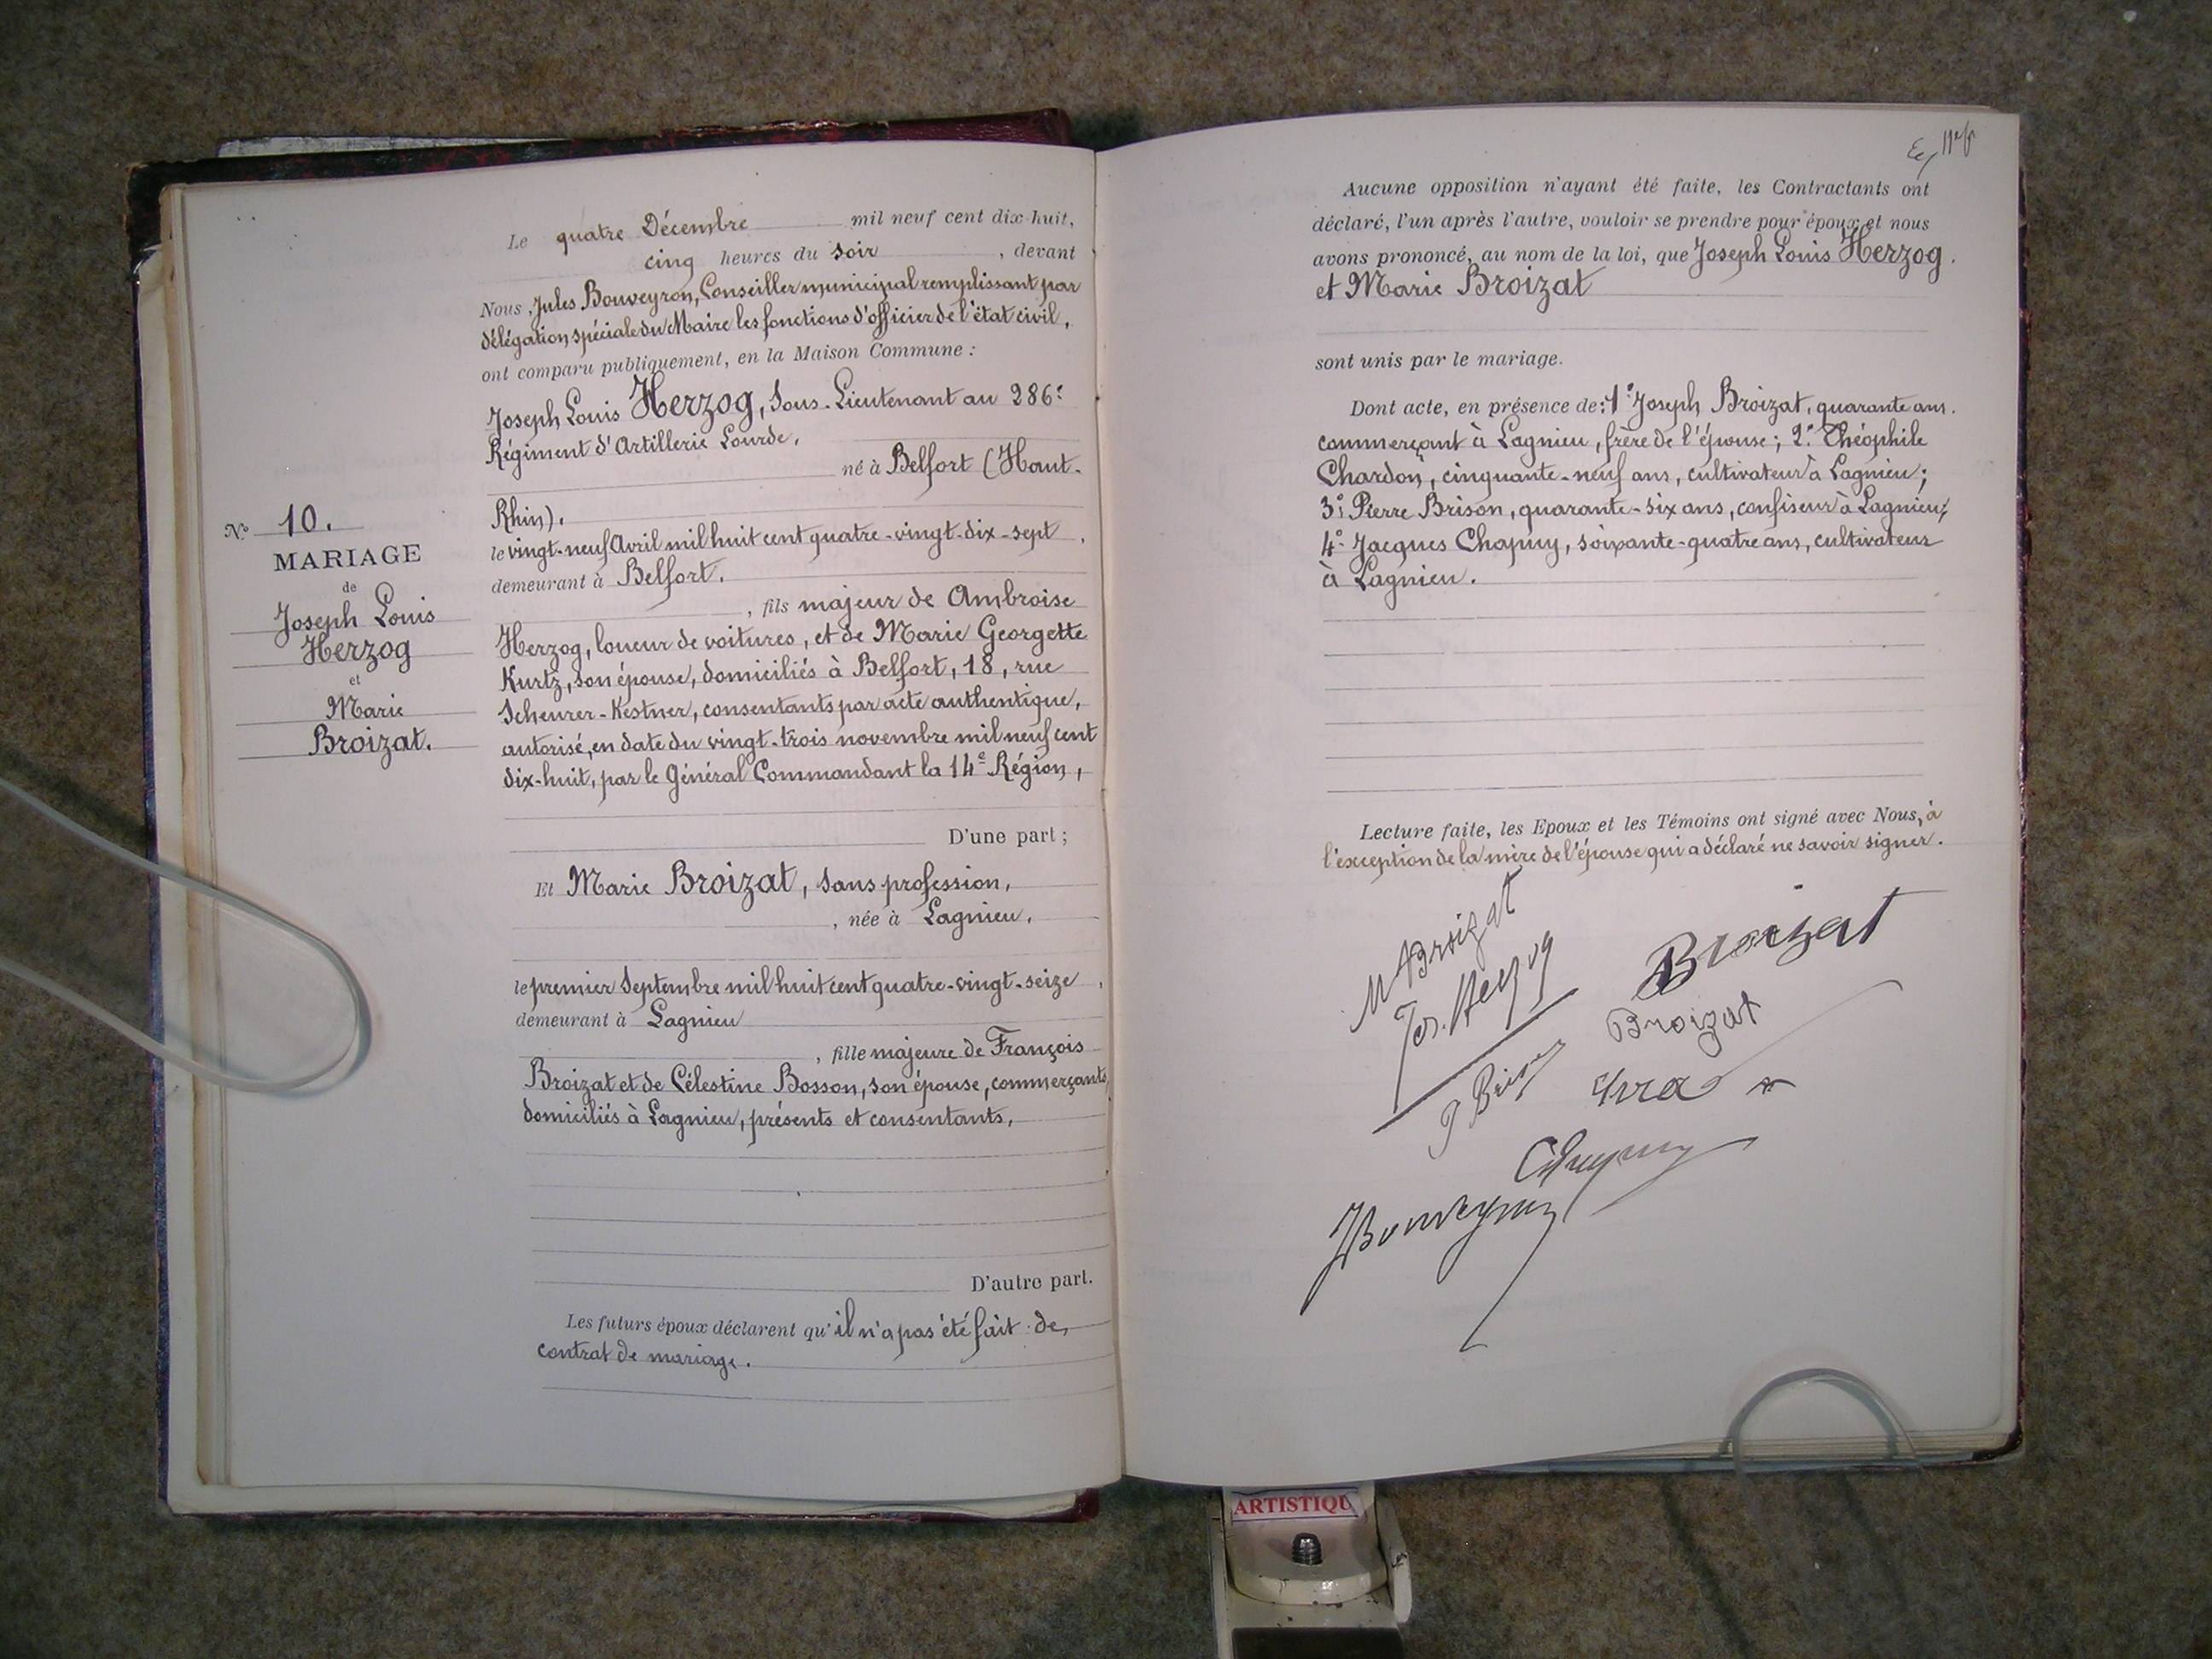 Le quatre Décembre mil neuf cent dix-huit,
cinq heures du soir, devant
Nous, Jules Bouveyron, Conseiller municipal remplissant par
délégation spéciale du Maire les fonctions d'officier de l'état civil,
ont comparu publiquement, en la Maison Commune :
Joseph Louis Herzog, Sous-Lieutenant au 286e
Régiment d'Artillerie Lourde,
né à Belfort (Haut-
Rhin),
le vingt-neuf Avril mil huit cent quatre-vingt-dix-sept,
demeurant à Belfort,
, fils majeur de Ambroise
Herzog, loueur de voitures, et de Marie Georgette
Kurtz, son épouse, domiciliés à Belfort, 18, rue
Scheurer-Kestner, consentants par acte authentique,
autorisé, en date du vingt-trois novembre mil neuf cent
dix-huit, par le Général Commandant la 14e Région,
D'une part ;
Et Marie Broizat, sans profession,
, née à Lagnieu,
le premier Septembre mil huit cent quatre-vingt-seize,
demeurant à Lagnieu
, fille majeure de François
Broizat et de Célestine Bosson, son épouse, commerçants,
domiciliés à Lagnieu, présents et consentants,
D'autre part.
Les futurs époux déclarent qu'il n'a pas été fait de
contrat de mariage.
No 10.
MARIAGE
de
Joseph Louis
Herzog
et
Marie
Broizat.
Aucune opposition n'ayant été faite, les Contractants ont
déclaré, l'un après l'autre, vouloir se prendre pour époux et nous
avons prononcé, au nom de la loi, que Joseph Louis Herzog.
et Marie Broizat
sont unis par le mariage.
Dont acte, en présence de : 1° Joseph Broizat, quarante ans,
commerçant à Lagnieu, frère de l'épouse ; 2° Théophile
Chardon, cinquante-neuf ans, cultivateur à Lagnieu ;
3° Pierre Brison, quarante-six ans, confiseur à Lagnieu ;
4° Jacques Chapuy, soixante-quatre ans, cultivateur
à Lagnieu.
Lecture faite, les Epoux et les Témoins ont signé avec Nous, à
l'exception de la mère de l'épouse qui a déclaré ne savoir signer.
M Broizat
Jos. Herzog
Broizat
Broizat
P Brison
Chapuy
JBouveyron
ARTISTIQU